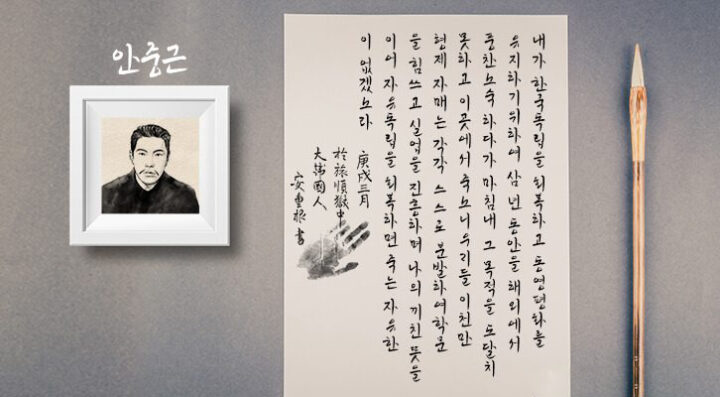 안중근
내가 한국독립을 회복하고 동양평화를
유지하기위하여 삼년 동안을 해외에서
풍찬노숙 하다가 마침내 그 목적을 도달치
못하고 이곳에서 죽노니우리들 이천만
형제 자매는 각각 스스로 분발하여학문
을 힘쓰고 실업을 진흥하며 나의 끼친 뜻을
이어 자유독립을 회복하면 죽는 자유한
이 없겠노라
庚戌三月
於旅順獄中
大韓國人
安重根 書